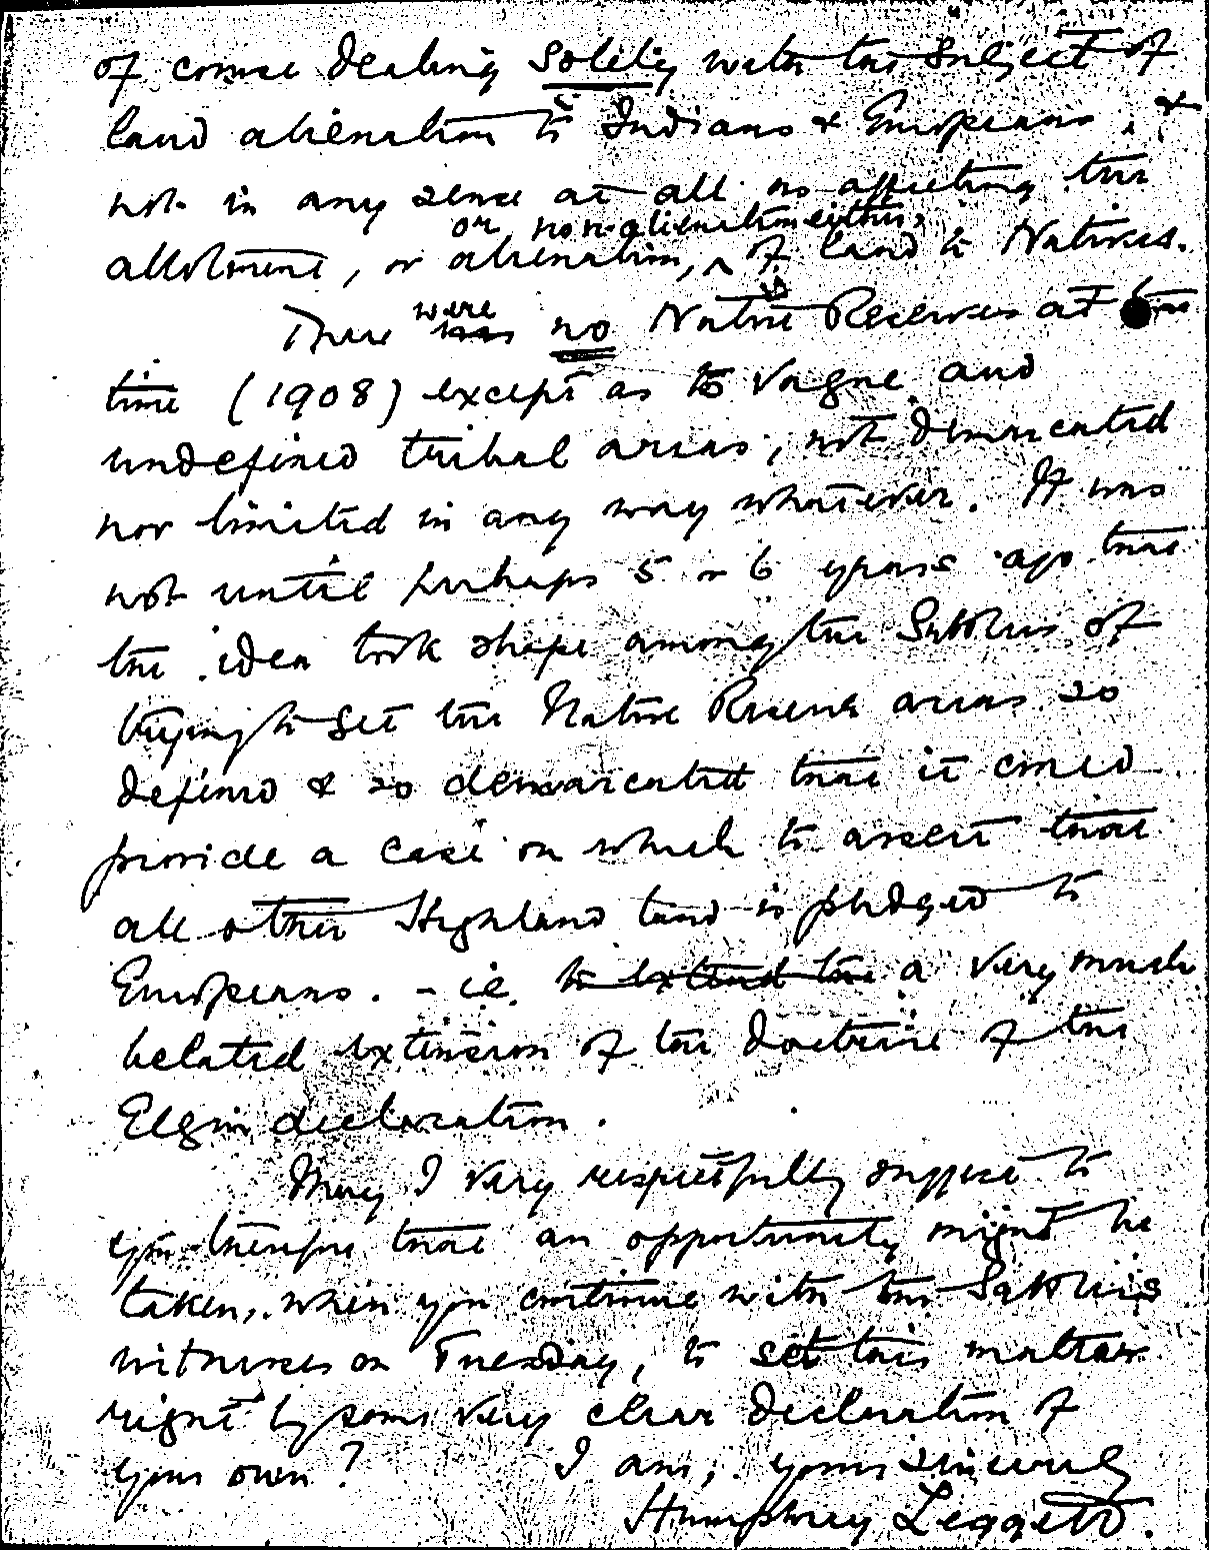 of course dealing solely with the subject of
land alienation to Indians & Europeans, &
not in any sense at all as affecting the
or non-alienation either,
allotment, or alienation, ^ of land to Natives.
There were has no Native Reserves at the
time (1908) except as to vague and
undefined tribal areas, not demarcated
nor limited in any way whatever. It was
not until perhaps 5 or 6 years ago that
the idea took shape among the Settlers of
trying to get the Native Reserve areas so
defined & so demarcated that it could
provide a case on which to assert that
all other Highland land is pledged to
Europeans. - i.e. to extend the a very much
belated extension of the doctrine of the
Elgin declaration.
May I very respectfully suggest to
you therefore that an opportunity might be
taken, when you continue with the Settlers
witnesses on Tuesday, to set this matter
right by some very clear declaration of
your own? I am, yours sincerely
Humphrey Leggett.